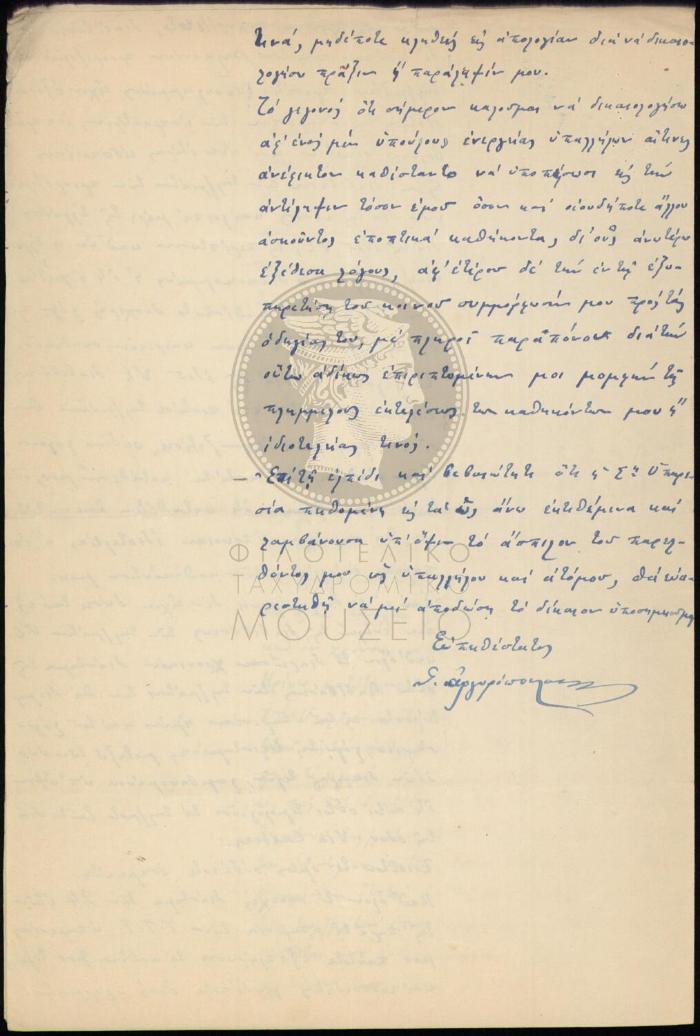 τινά, μηδέποτε κληθείς εις απολογίαν διά να δικαιο-
λογήσω πράξιν ή παράλειψίν μου.
Το γεγονός ότι σήμερον καλούμαι να δικαιολογήσω
αφ' ενός μέν υπούλους ενεργείας υπαλλήλων αίτινες
ανέφικτον καθίσταντο να υποπέσωσι εις την
αντίληψιν τόσον εμού όσον και οιουδήποτε άλλου
ασκούντος εποπτικά καθήκοντα, δι' ούς ανωτέρω
εξέθεσα λόγους, αφ' ετέρου δέ την εν τη εξυ-
πηρετήσει του κοινού συμμόρφωσίν μου προς τάς
οδηγίας του, με πληροί παραπόνου διά την
ούτω αδίκως επιρριπτομένην μοι μομφήν της
πλημμελούς εκτελέσεως των καθηκόντων μου ή
ιδιοτελείας τινός.
Επί τη ελπίδι και βεβαιότητι ότι η Σ. Υπηρε-
σία πειθομένη εις τα ως άνω εκτεθέμενα και
λαμβάνουσα υπ' όψιν το άσπιλον του παρελ-
θόντος μου ως υπαλλήλου και ατόμου, θα ευα-
ρεστηθή να μοί αποδώση το δίκαιον υποσημειούμαι
Ευπειθέστατος
Σ. Αργυρόπουλος
ΦΙΛΟΤΕΛΙΚΟ
ΤΑΧΥΔΡΟΜΙΚΟ
ΜΟΥΣΕΙΟ